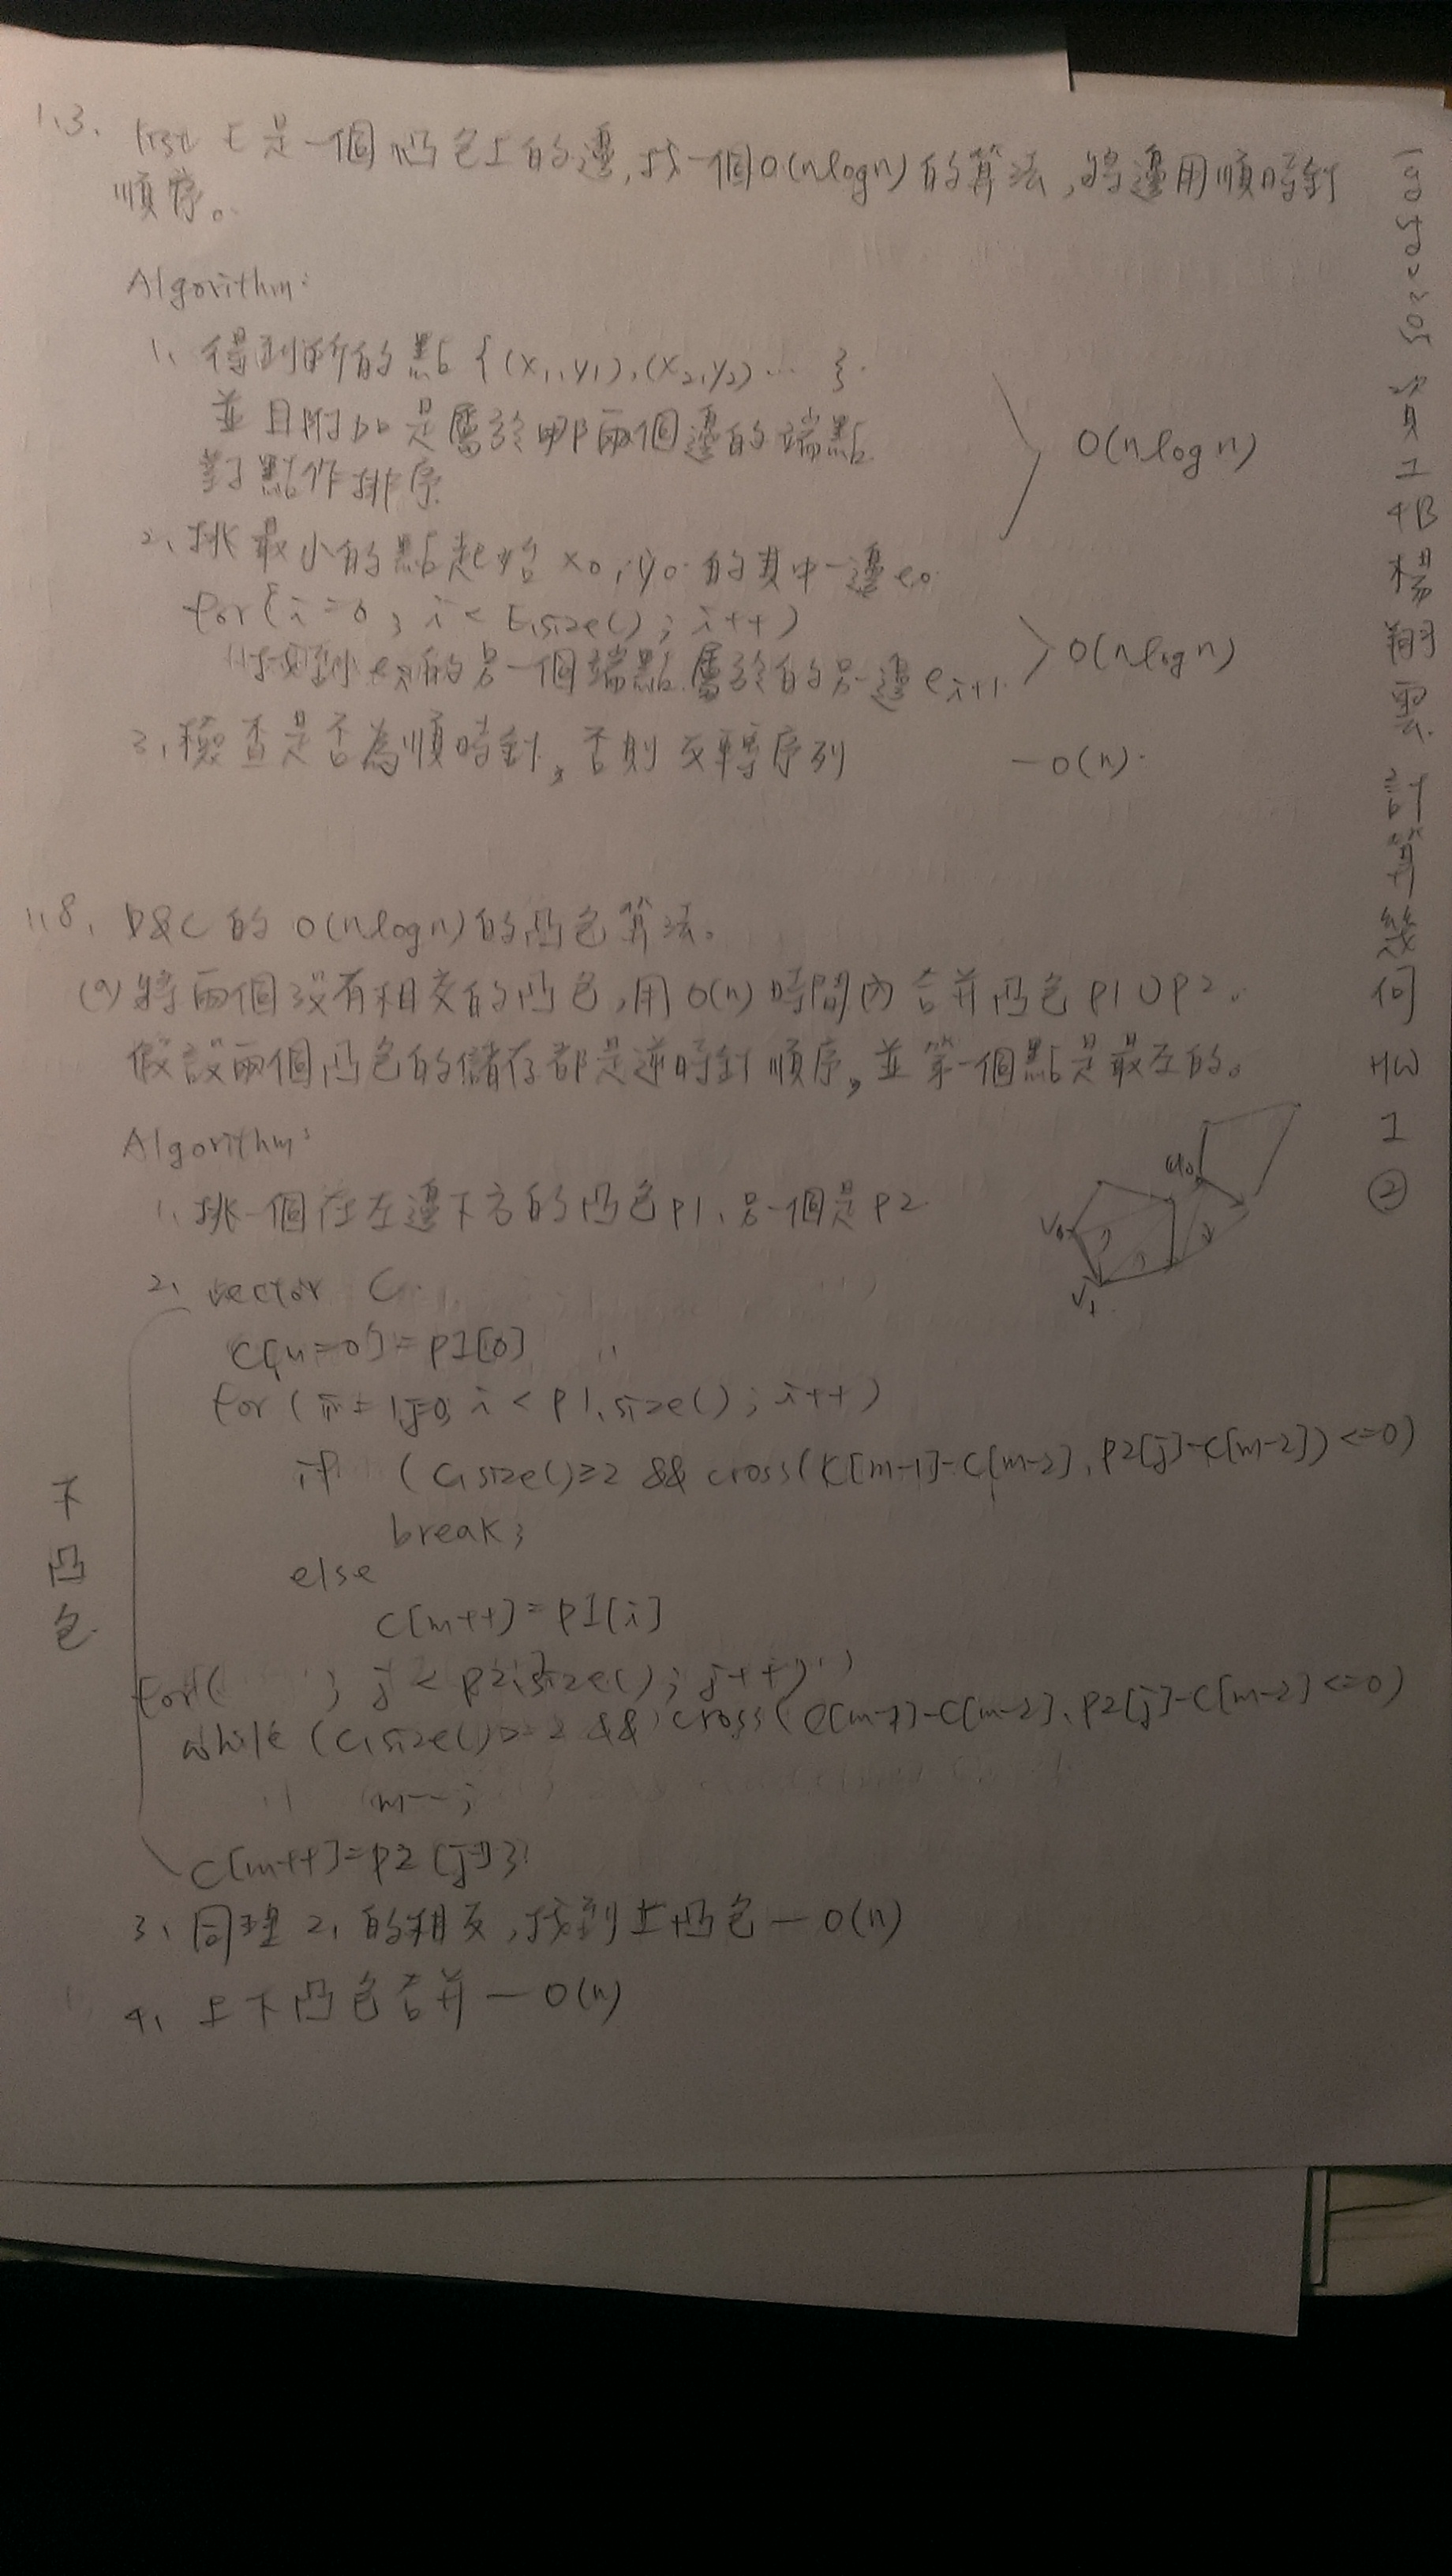 1.3. List E 是一個凸包上的邊,找一個O(nlogn)的算法,將邊用順時針
順序。
Algorithm:
1. 得到所有的點 {(x1,y1),(x2,y2)... }.
並且附加是屬於哪兩個邊的端點
對點作排序
O(nlogn)
2. 挑最小的點起始 x0,y0 的其中一邊e0.
for(i=0; i< E.size(); i++)
找到ei的另一個端點屬於的另一邊ei+1.
O(nlogn)
3. 檢查是否為順時針,否則反轉序列 — O(n).
1.8. D&C 的 O(nlogn)的凸包算法。
(a) 將兩個沒有相交的凸包,用O(n)時間內合并凸包P1∪P2。
假設兩個凸包的儲存都是逆時針順序,並第一個點是最左的。
Algorithm:
1. 挑一個在左邊下方的凸包P1,另一個是P2
2. vector C
C[m=0]=P1[0]
for(i=1,j=0; i<P1.size(); i++)
if (C.size()≥2 && cross(C[m-1]-C[m-2], P2[j]-C[m-2])<=0)
break;
else
C[m++]=P1[i]
for( ; j<P2.size(); j++)
while (C.size()>=2 && cross(C[m-1]-C[m-2], P2[j]-C[m-2]<=0)
m--;
C[m++]=P2[j];
下凸包
3. 同理 2. 的相反,找到上凸包—O(n)
4. 上下凸包合并—O(n)
V0
V1
u0
資工4B 楊翔雲 計算幾何 HW 1 ②